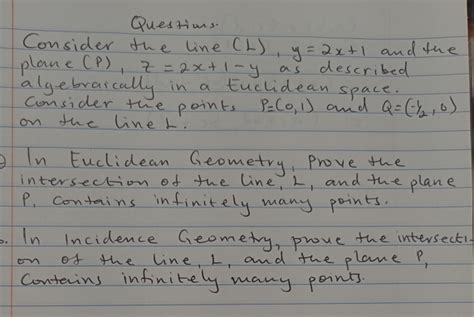 Questions.
Consider the line (L), y = 2x+1 and the
plane (P), z = 2x+1-y as described
algebraically in a Euclidean space.
Consider the points P=(0,1) and Q=(-1/2, 0)
on the line L.
In Euclidean Geometry, Prove the
intersection of the line, L, and the plane
P, contains infinitely many points.
b. In Incidence Geometry, prove the intersecti-
on of the line, L, and the plane P,
Contains infinitely many points.